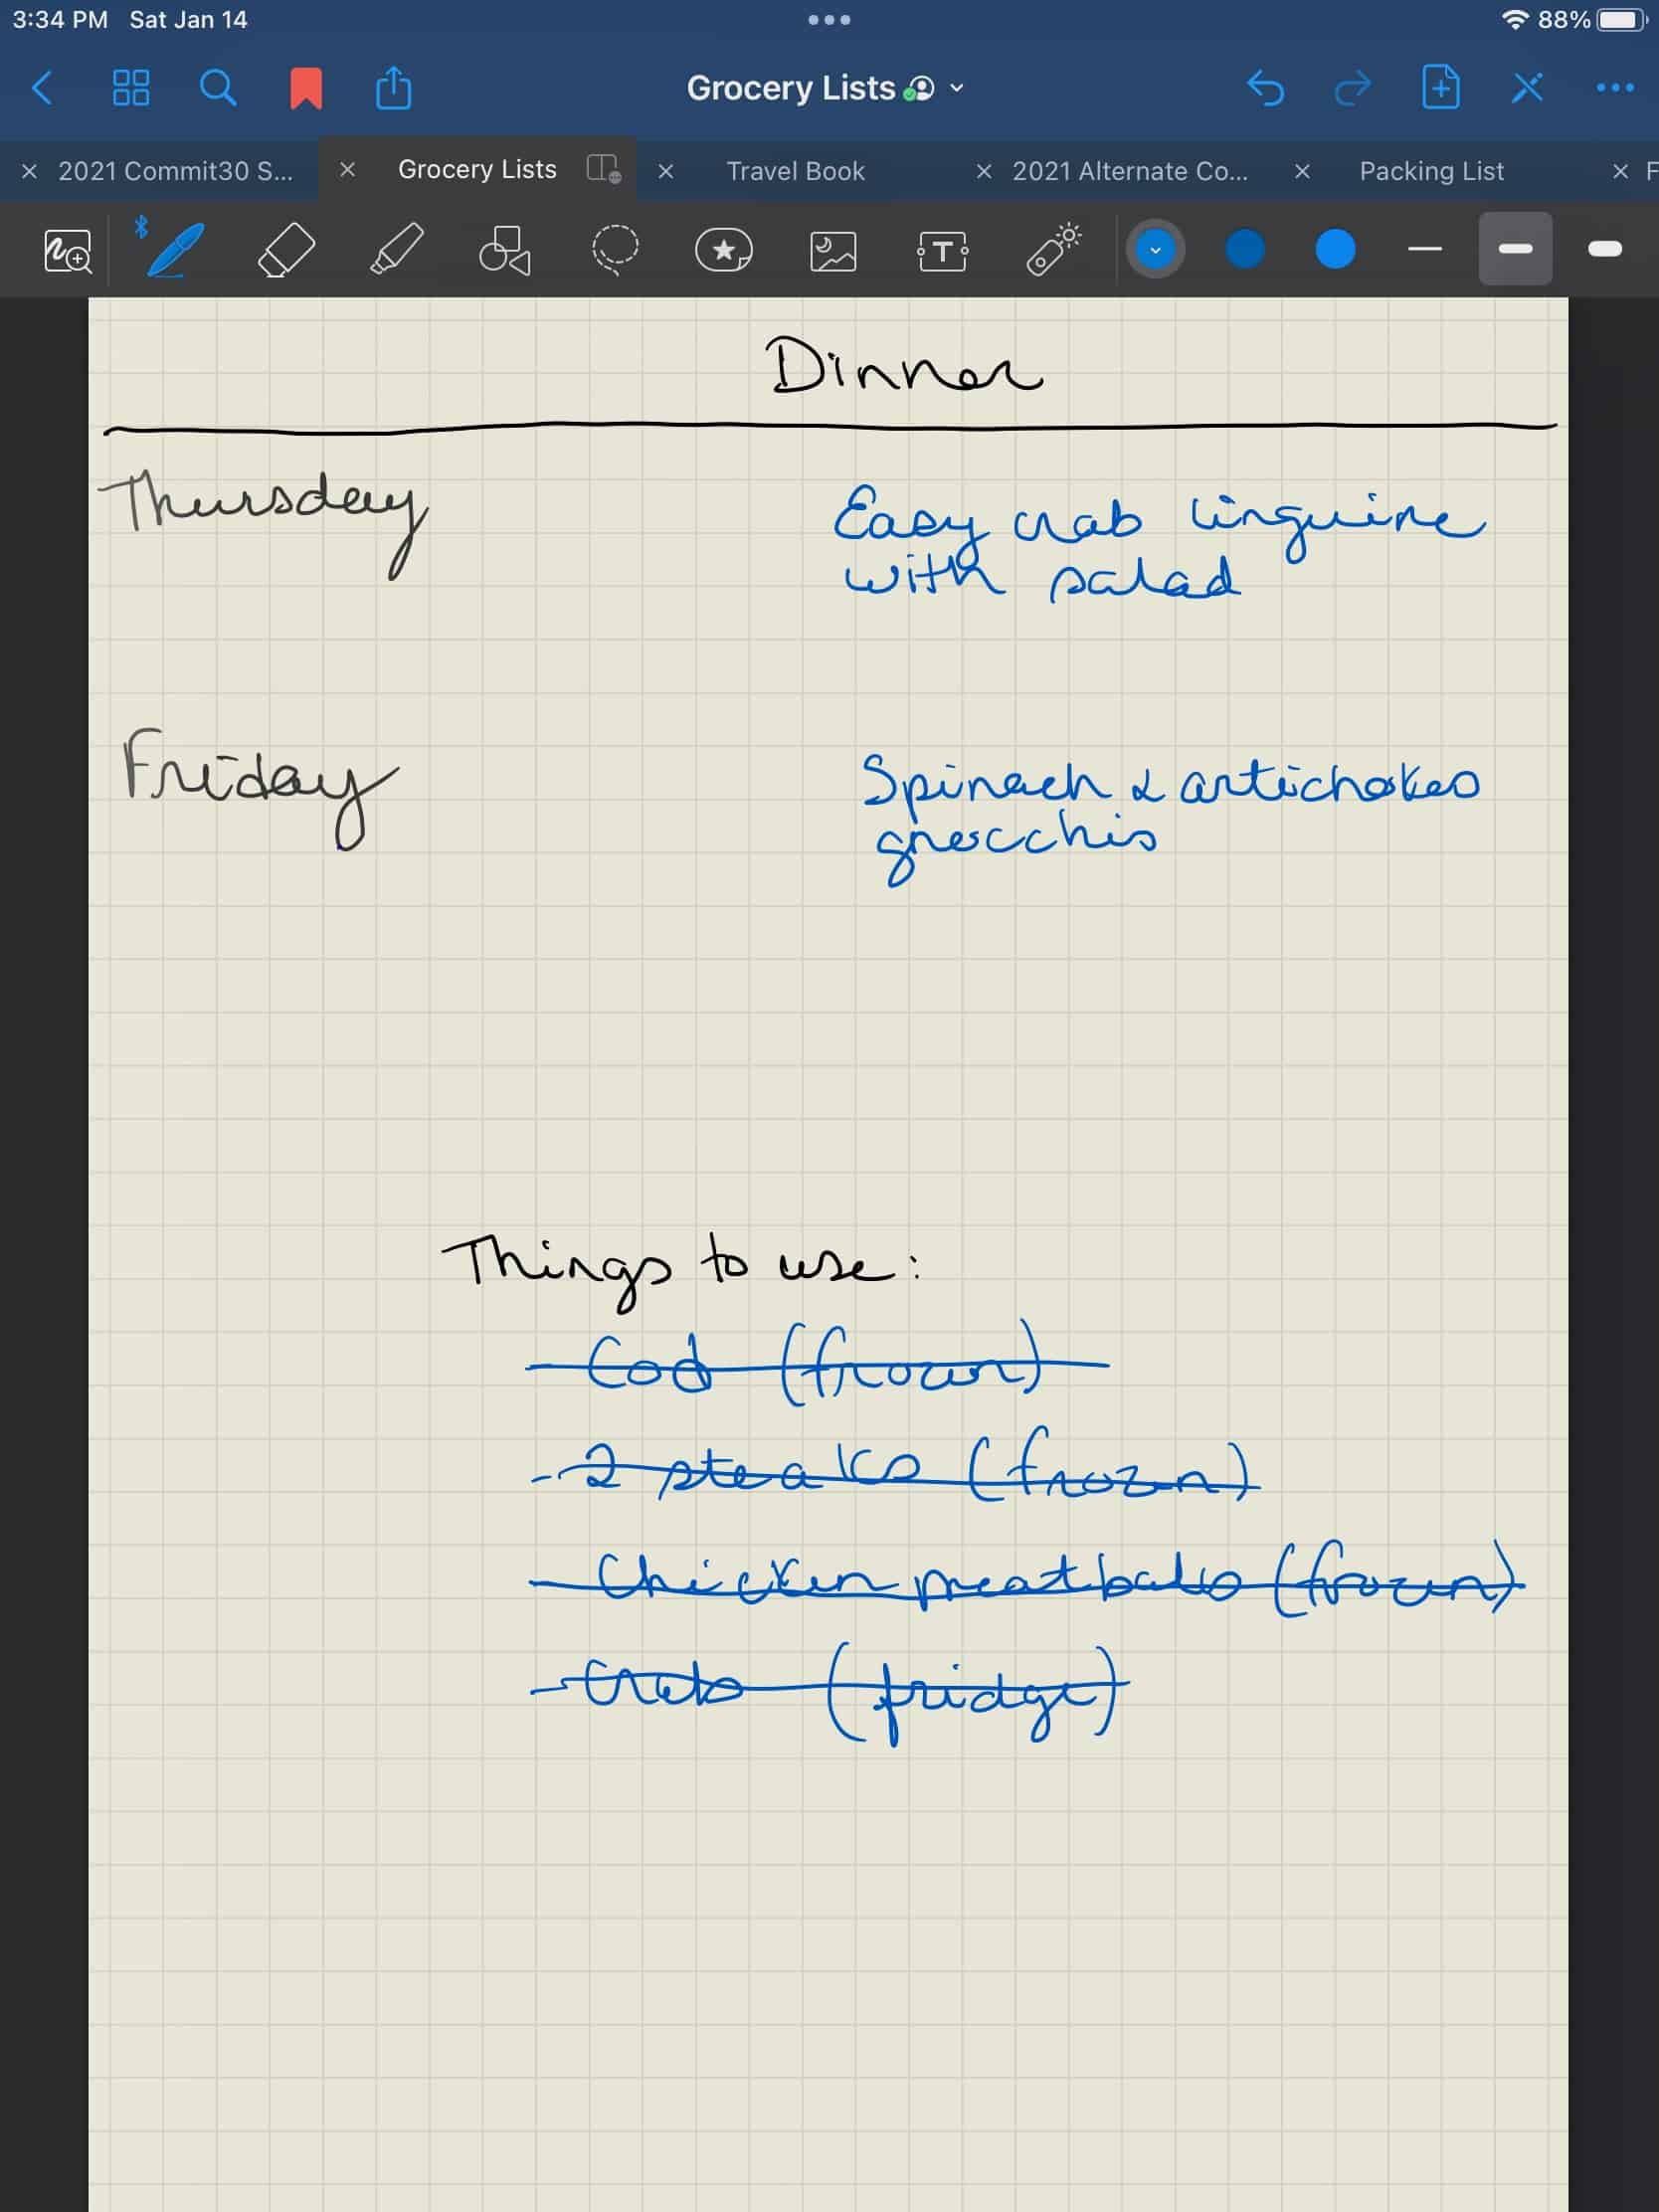 3:34 PM Sat Jan 14
88%
Grocery Lists
2021 Commit30 S...
Grocery Lists
Travel Book
2021 Alternate Co...
Packing List
F
T
Dinner
Thursday
Easy crab linguine
with salad
Friday
Spinach & artichokes
gnocchis
Things to use:
- Cod (frozen)
- 2 steaks (frozen)
- Chicken meatballs (frozen)
- Crab (fridge)